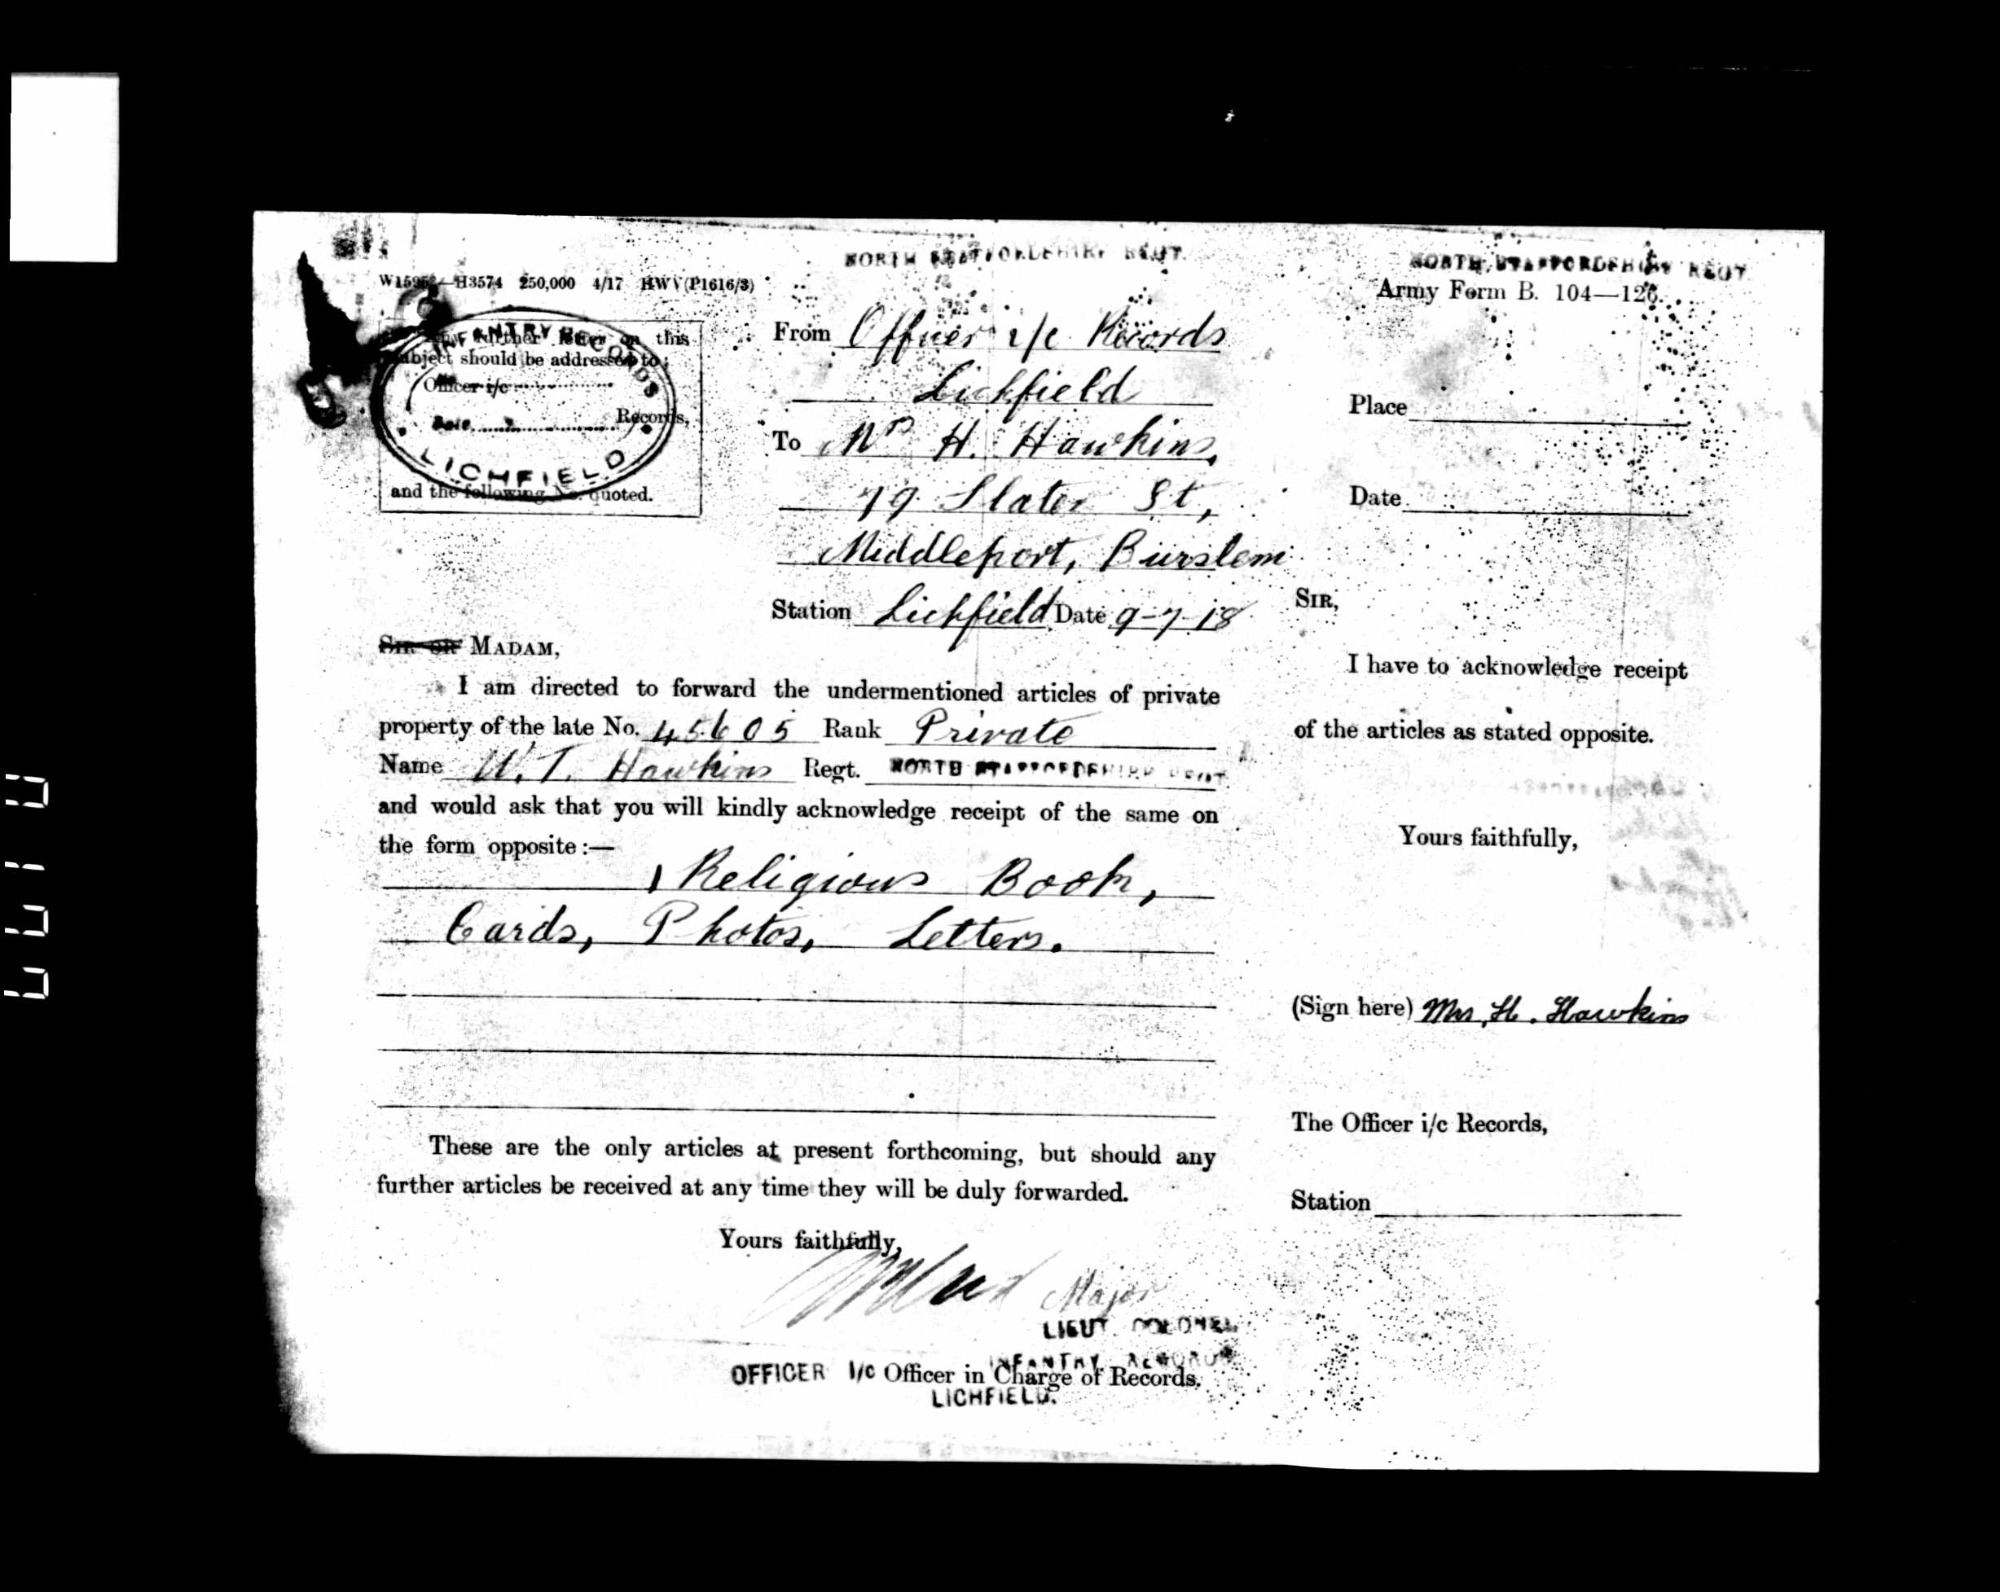 NORTH STAFFORDSHIRE REGT.
NORTH STAFFORDSHIRE REGT.
H3574 250,000 4/17 HWV(P1616/3)
Army Form B. 104—126.
INFANTRY RECORDS
further letter on this
subject should be addressed to:
Officer i/c
Date
Records,
LICHFIELD
and the following No. quoted.
From Officer i/c Records
Lichfield
To Mrs H. Hawkins,
79 Slater St,
Middleport, Burslem
Station Lichfield Date 9-7-18
Sir or MADAM,
I am directed to forward the undermentioned articles of private
property of the late No. 45605 Rank Private
Name W. T. Hawkins Regt. NORTH STAFFORDSHIRE REGT.
and would ask that you will kindly acknowledge receipt of the same on
the form opposite:—
1 Religious Book,
Cards, Photos, Letters.
These are the only articles at present forthcoming, but should any
further articles be received at any time they will be duly forwarded.
Yours faithfully,
Major
LIEUT. COLONEL
INFANTRY RECORDS
OFFICER I/c Officer in Charge of Records.
LICHFIELD.
Place
Date
SIR,
I have to acknowledge receipt
of the articles as stated opposite.
Yours faithfully,
(Sign here) Mrs, H. Hawkins
The Officer i/c Records,
Station